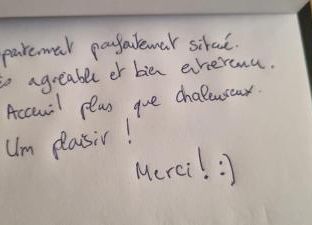 partement parfaitement situé.
agréable et bien entretenu.
Acceuil plus que chaleureux.
Um plaisir !
Merci ! :)